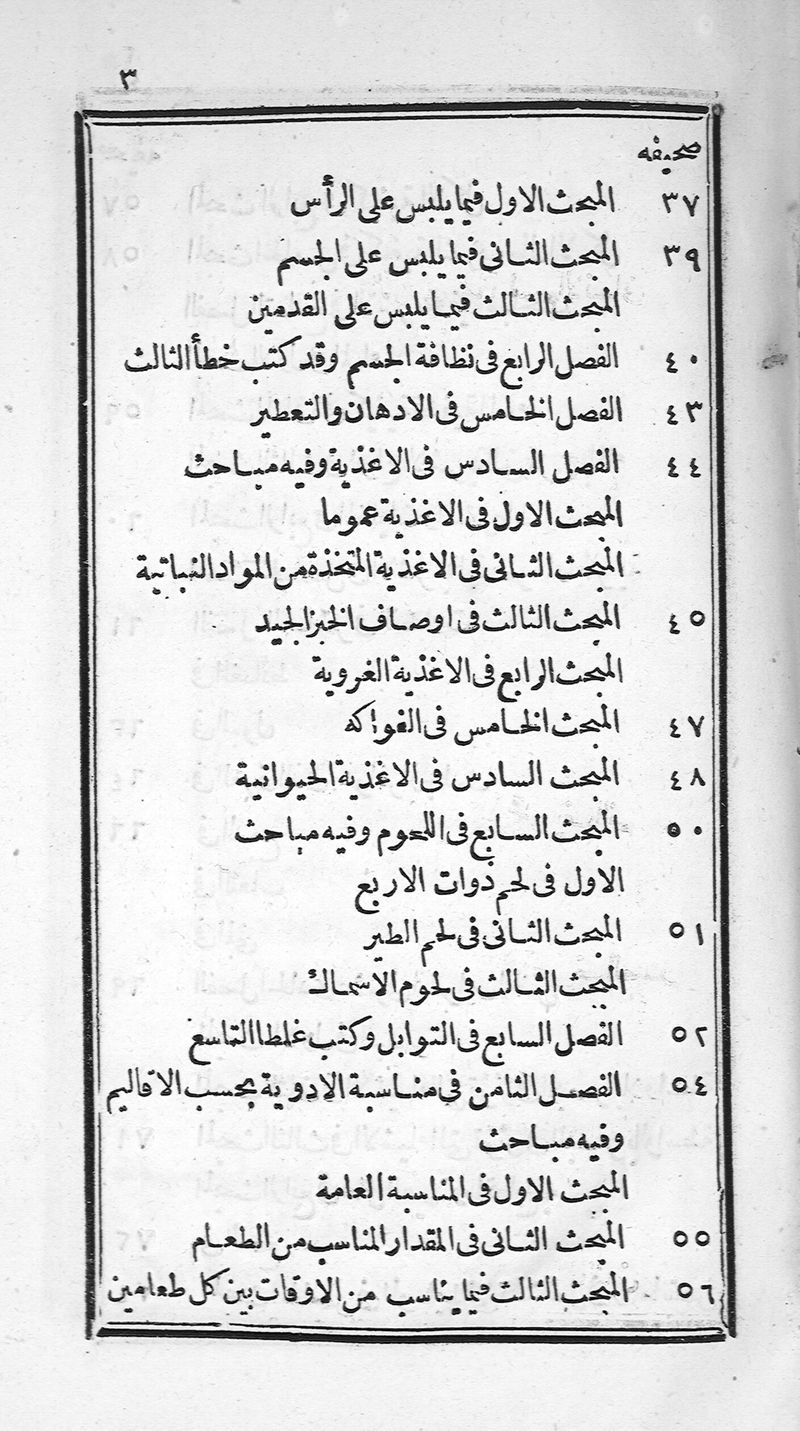 ٣
صحيفه
٣٧ المبحث الاول فيما يلبس على الرأس
٣٩ المبحث الثانى فيما يلبس على الجسم
المبحث الثالث فيما يلبس على القدمين
٤٠ الفصل الرابع فى نظافة الجسم وقد كتب خطأ الثالث
٤٣ الفصل الخامس فى الادهان والتعطير
٤٤ الفصل السادس فى الاغذية وفيه مباحث
المبحث الاول فى الاغذية عموما
المبحث الثانى فى الاغذية المتخذة من المواد النباتية
٤٥ المبحث الثالث فى اوصاف الخبز الجيد
المبحث الرابع فى الاغذية الغروية
٤٧ المبحث الخامس فى الفواكه
٤٨ المبحث السادس فى الاغذية الحيوانية
٥٠ المبحث السابع فى اللحوم وفيه مباحث
الاول فى لحم ذوات الاربع
٥١ المبحث الثانى فى لحم الطير
المبحث الثالث فى لحوم الاسماك
٥٢ الفصل السابع فى التوابل وكتب غلطا التاسع
٥٤ الفصل الثامن فى مناسبة الادوية بحسب الاقاليم
وفيه مباحث
المبحث الاول فى المناسبة العامة
٥٥ المبحث الثانى فى المقدار المناسب من الطعام
٥٦ المبحث الثالث فيما يناسب من الاوقات بين كل طعامين